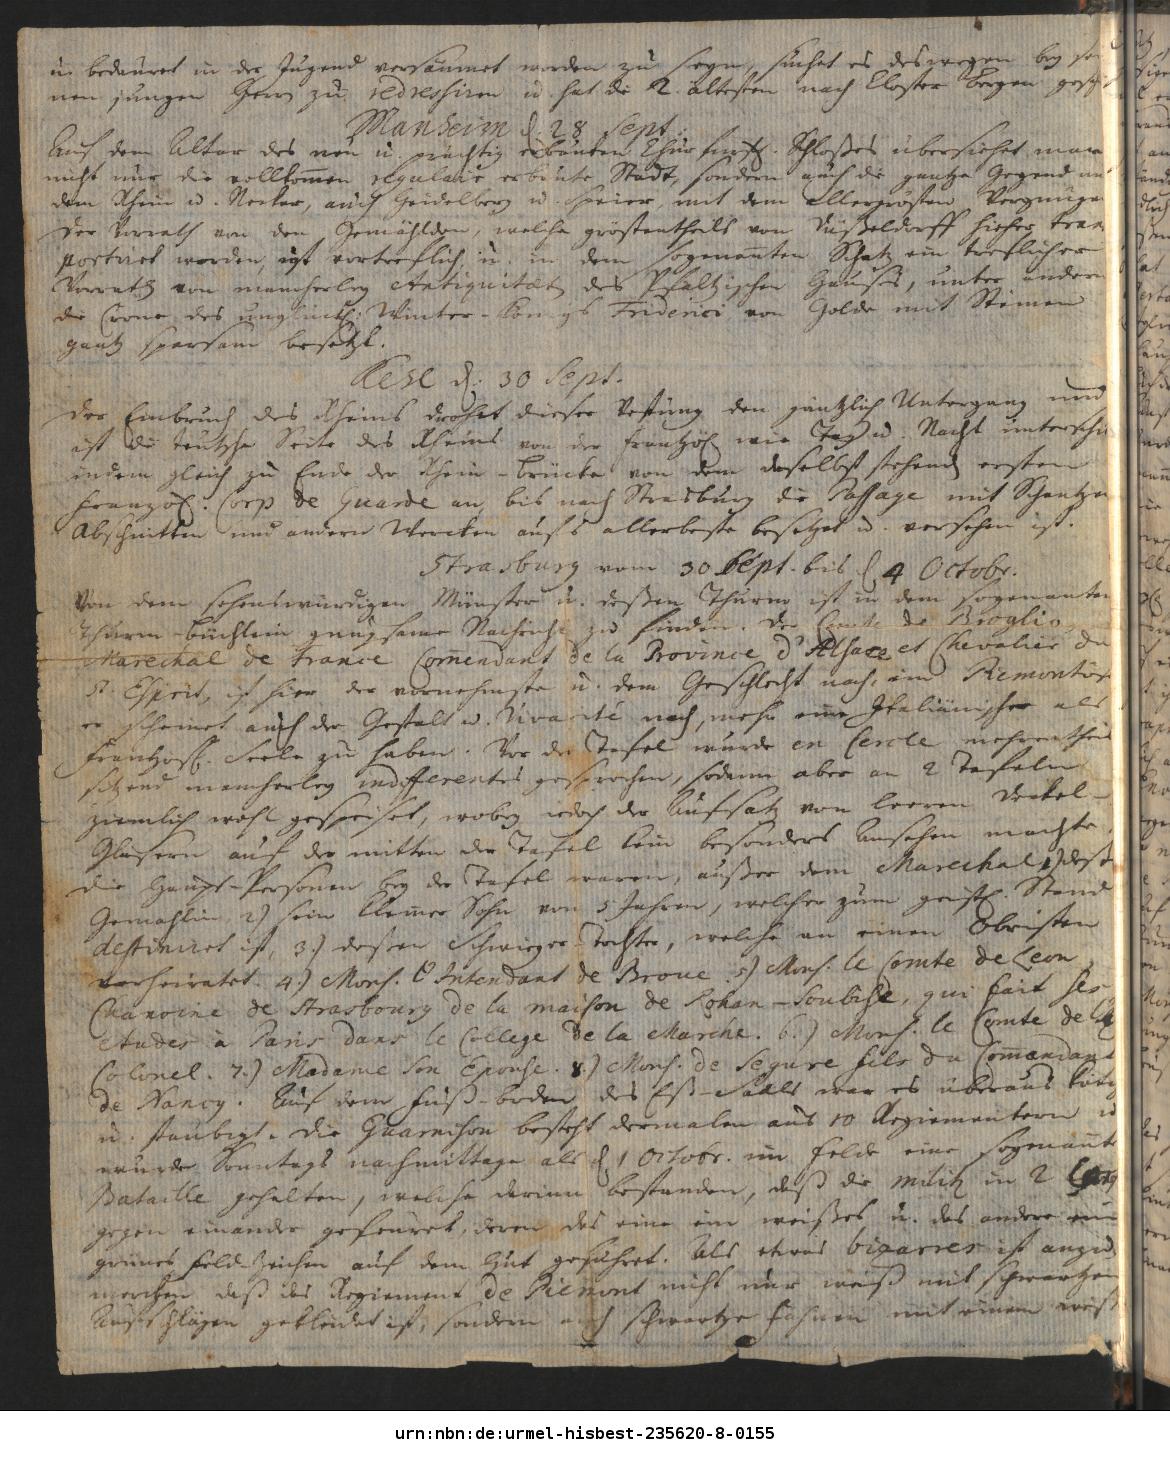 u. bedauret in der Jugend versäumet worden zu seyn, suchet es deswegen bey sei
nen jungen Herrn zu redressiren u. hat die 2. ältesten nach Closter Bergen gesch
Manheim d. 28 Sept.
Auf dem Altar des neu u. prächtig erbauten Churfürstl. Schloßes übersiehet man
nicht nur die vollkom̅en regulair erbaute Stadt, sondern auch die gantze Gegend an
dem Rhein u. Necker, auch Heidelberg u. Speier, mit dem allergrösten Vergnügen
Der Vorrath von den Gemählden, welche gröstentheils von Düßeldorff hieher trans
portiret worden, ist vortreflich, u. in dem sogenan̅ten Schatz ein trefflicher
Vorrath von mancherley Antiquitæten des Pfältzischen Hauses, unter andern
die Crone des unglückl: Winter-Königs Friderici von Golde mit Steinen
gantz sparsam besetzt.
Kehl d. 30 Sept.
Der Einbruch des Rheins drohet dieser Vestung den gäntzlich Untergang und
ist die teutsche Seite des Rheins von der Frantzös. wie Tag u. Nacht unterschie
indem gleich zu Ende der Rhein-Brücke von dem daselbst stehend ersten
Französ. Corp de Guarde an, bis nach Strasburg die Passage mit Schantzen
Abschnitten und andern Wercken aufs allerbeste besetzet u. versehen ist.
Strasburg vom 30 Sept. bis d. 4 Octobr.
Von dem sehenswürdigen Münster u. deßen Thurme ist in dem sogenanten
Thurm-büchlein gnugsame Nachricht zu finden. Der Comte de Broglio
Marechal de France Com̅endant de la Province d'Alsace et Chevalier du
St. Esprit, ist hier der vornehmste u. dem Geschlecht nach, ein Piemonteser
er scheinet auch der Gestalt u. Vivacité nach, mehr eine Italiänische als
Frantzöß. Seele zu haben. Vor der Tafel wurde en Cercle mehrentheils
sitzend mancherley indifferentes gesprochen, sodann aber an 2 Tafeln
ziemlich wohl gespeiset, wobey jedoch der Aufsatz von leeren Deckel-
Gläsern auf der mitten der Tafel kein besonders Ansehen machte.
Die Haupt-Personen bey der Tafel waren, außer dem Marechal 1) deß
Gemahlin, 2) sein kleiner Sohn von 5 Jahren, welcher zum geistl. Stand
destiniret ist, 3.) deßen Schwieger-Tochter, welche an einen Obristen
verheiratet. 4.) Mons. l'Intendant de Broue. 5) Mons. le Comte de Leon
Chanoine de Strasbourg de la maison de Rohan-Soubise, qui fait ses
etudes à Paris dans le College de la Marche. 6.) Mons. le Comte de
Colonel. 7.) Madame son Epouse. 8.) Mons. de Segure fils du Com̅endant
de Nancy. Auf dem Fuß-boden des Eß-Saals war es überaus
u. staubigt. Die Guarnison besteht dermalen aus 10 Regimentern u
wurde Sonntags nachmittage als d. 1 Octobr. im Felde eine sogenan̅te
Bataille gehalten, welche darinn bestanden, daß die militz in 2
gegen einander gefeuret, deren das eine ein weißes u. das andere ein
grünes Feld-Zeichen auf dem Hut geführet. Als etwas bizarres ist anzu
mercken, daß das Regiment de Piemont nicht nur weiß mit schwartzen
Aufschlägen gekleidet ist, sondern auch schwartze Fahnen mit einem weiß
urn:nbn:de:urmel-hisbest-235620-8-0155